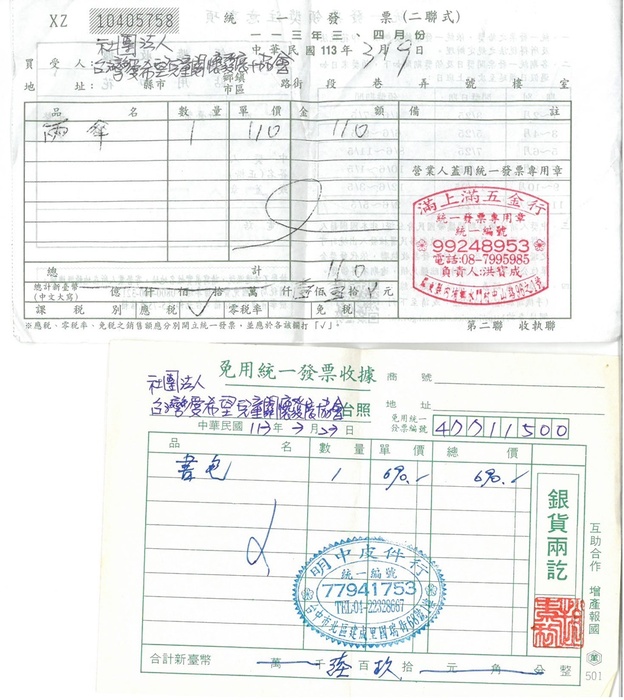 XZ 10405758 統一發票(二聯式)
一一三年三、四月份
社團法人
中華民國113年3月9日
買受人:台灣愛希望兒童關懷發展協會
地址: 縣市 鄉鎮市區 路街 段 巷 弄 號 樓 室
品名 數量 單價 金額 備註
雨傘 1 110 110
營業人蓋用統一發票專用章
滿上滿五金行
統一發票專用章
統一編號
99248953
電話:08-7995985
負責人:洪寶成
總計 110
總計新臺幣(中文大寫) 億 仟 佰 拾 萬 仟 佰 拾 元
課稅別 應稅 √ 零稅率 免稅
※應稅、零稅率、免稅之銷售額應分別開立統一發票,並應於各該欄打「√」。
第二聯 收執聯
免用統一發票收據
商號
社團法人
台灣愛希望兒童關懷發展協會 台照
地址
中華民國113年3月23日
免用統一發票編號 40011500
品名 數量 單價 總價
書包 1 690.- 690.-
銀貨兩訖
互助合作 增產報國
明中皮件行
統一編號
77941753
TEL:04-22328667
台中市北區建成里閣瑞街68號
合計新臺幣 萬 千 陸 百 玖 拾 元 角 分 整
萬
501